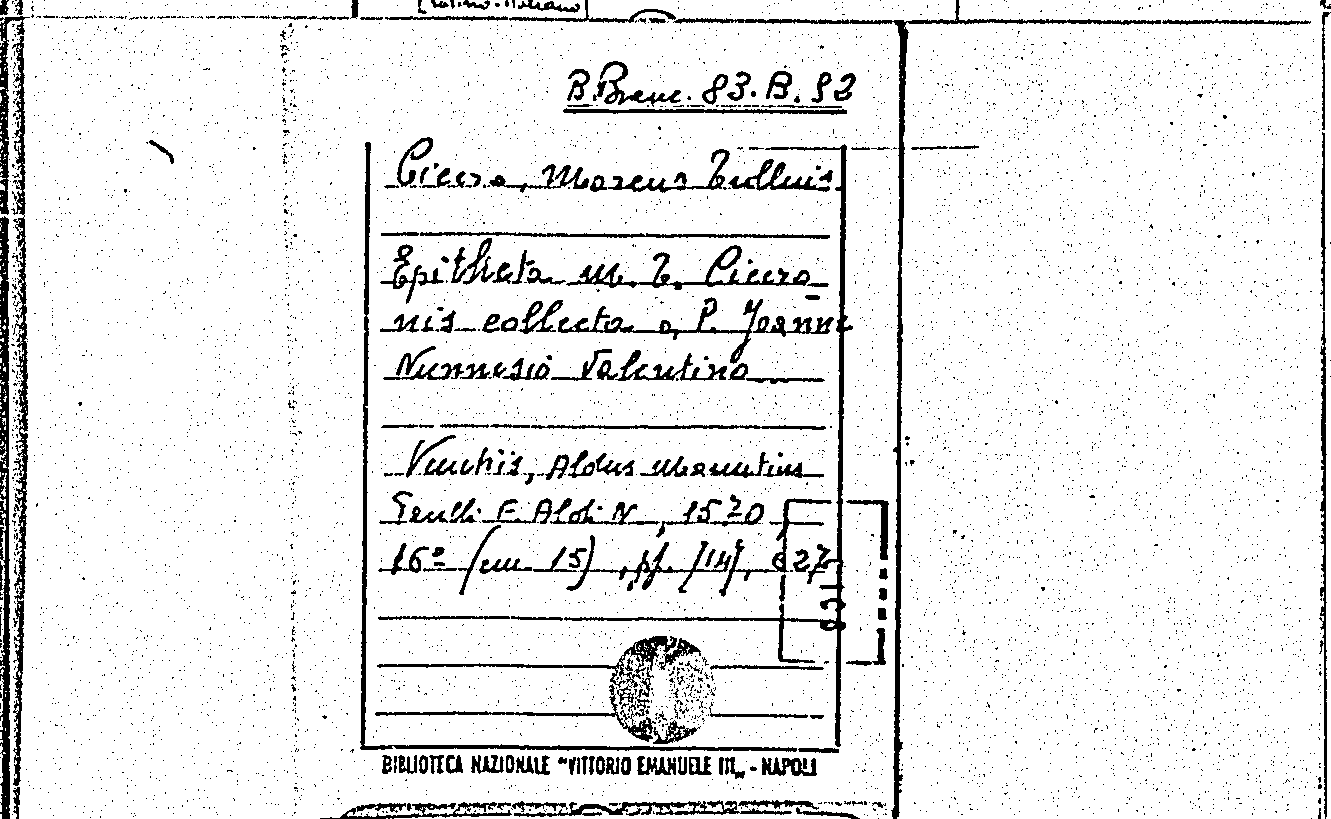 [Latino-Italiano
B. Branc. 83. B. 92
Cicero, Marcus Tullius
Epitheta M. T. Cicero
nis collecta a P. Joanne
Nunnesio Valentino
Venetiis, Aldus Manutius
Paulli F. Aldi N., 1570
16º (cm. 15), pp. [14], 627
BIBLIOTECA NAZIONALE "VITTORIO EMANUELE III„ - NAPOLI